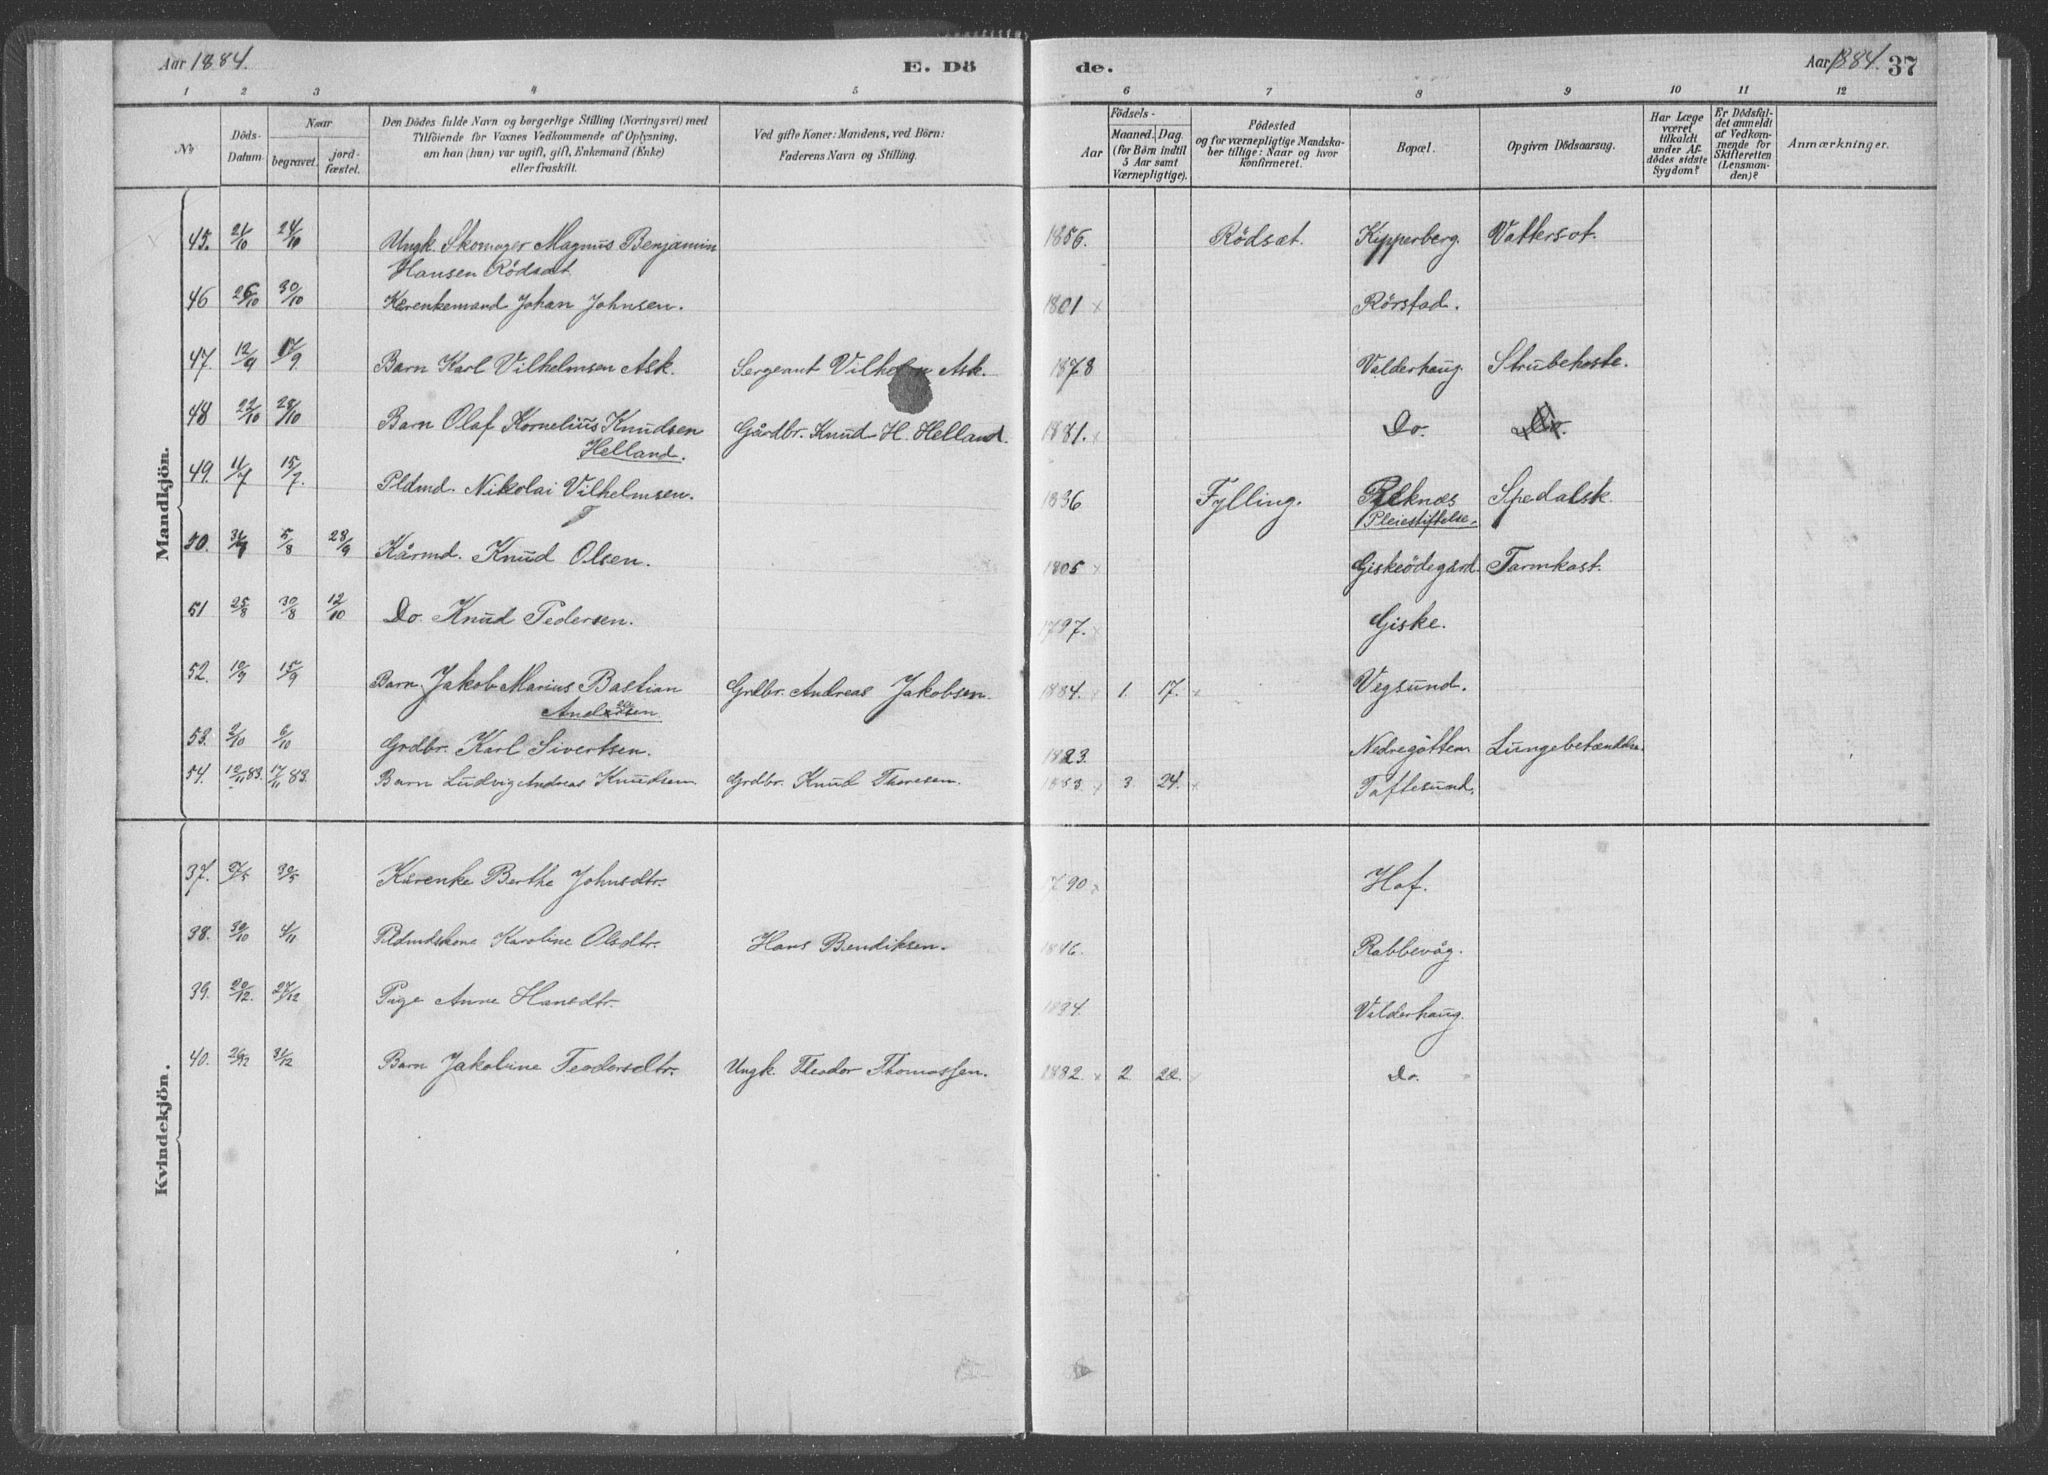 Aar 1884.
E. Döde.
Aar 1884. 37
1 2 3 4 5 6 7 8 9 10 11 12
No
Döds-Datum.
Naar
begravet.
jord-fæstet.
Den Dödes fulde Navn og borgerlige Stilling (Næringsvei) med
Tilföiende for Voxnes Vedkommende af Oplysning,
om han (hun) var ugift, gift, Enkemand (Enke)
eller fraskilt.
Ved gifte Koner: Mandens, ved Börn:
Faderens Navn og Stilling.
Födsels-
Aar
Maaned. Dag.
(for Börn indtil
5 Aar samt
Værnepligtige).
Födested
og for værnepligtige Mandska-
ber tillige: Naar og hvor
konfirmeret.
Bopæl.
Opgiven Dödsaarsag.
Har Læge
været
tilkaldt
under Af-
dödes sidste
Sygdom?
Er Dödsfal-
det anmeldt
af Vedkom-
mende for
Skifteretten
(Lensman-
den)?
Anmærkninger.
Mandkjön.
45. 21/10 24/10 Ungk. Skomager Magnus Benjamin 1856. Rödsæt. Kipperberg. Vattersot.
Hansen Rödsæt
46 26/10 30/10 Kårenkemand Johan Johnsen. 1801 Rörstad.
47. 12/9 17/9 Barn Karl Vilhelmsen Ask. Sergeant Vilhelm Ask. 1878 Valderhaug. Strubehoste.
48 22/10 28/10 Barn Olaf Kornelius Knudsen Gårdbr. Knud H. Helland. 1881. Do. Do.
Helland.
49. 11/7 15/7. Pldmd. Nikolai Vilhelmsen. 1836 Fylling. Reknæs Spedalsk.
Pleiestiftelse.
50. 5/8 28/9 Kårmd. Knud Olsen. 1805 Giskeödegård. Tarmkast.
51 25/8 30/8 12/10 Do. Knud Pedersen. 1797. Giske.
52. 10/9 15/9 Barn Jakob Marius Bastian Grdbr. Andreas Jakobsen. 1884. 1. 17. Vegsund.
Andersen
53. 2/10 6/10 Grdbr. Karl Sivertsen. 1823. Nedregötten Lungebetændelse
54. 12/11 83. 17/11 83. Barn Ludvig Andreas Knudsen. Grdbr. Knud Thoresen. 1883. 3. 24. Toftesund.
Kvindekjön.
37. 27/5 30/5 Kårenke Berthe Johnsdtr. 1790 Hof.
38. 30/10 4/11 Pldmdskone Karoline Olsdtr. Hans Bendiksen. 1846. Rabbevåg.
39. 20/12. 27/12 Pige Anne Hansdtr. Valderhaug.
40. 26/12 31/12 Barn Jakobine Teodorsdtr. Ungk. Theodor Thomassen. 1882. 2. 22. Do.